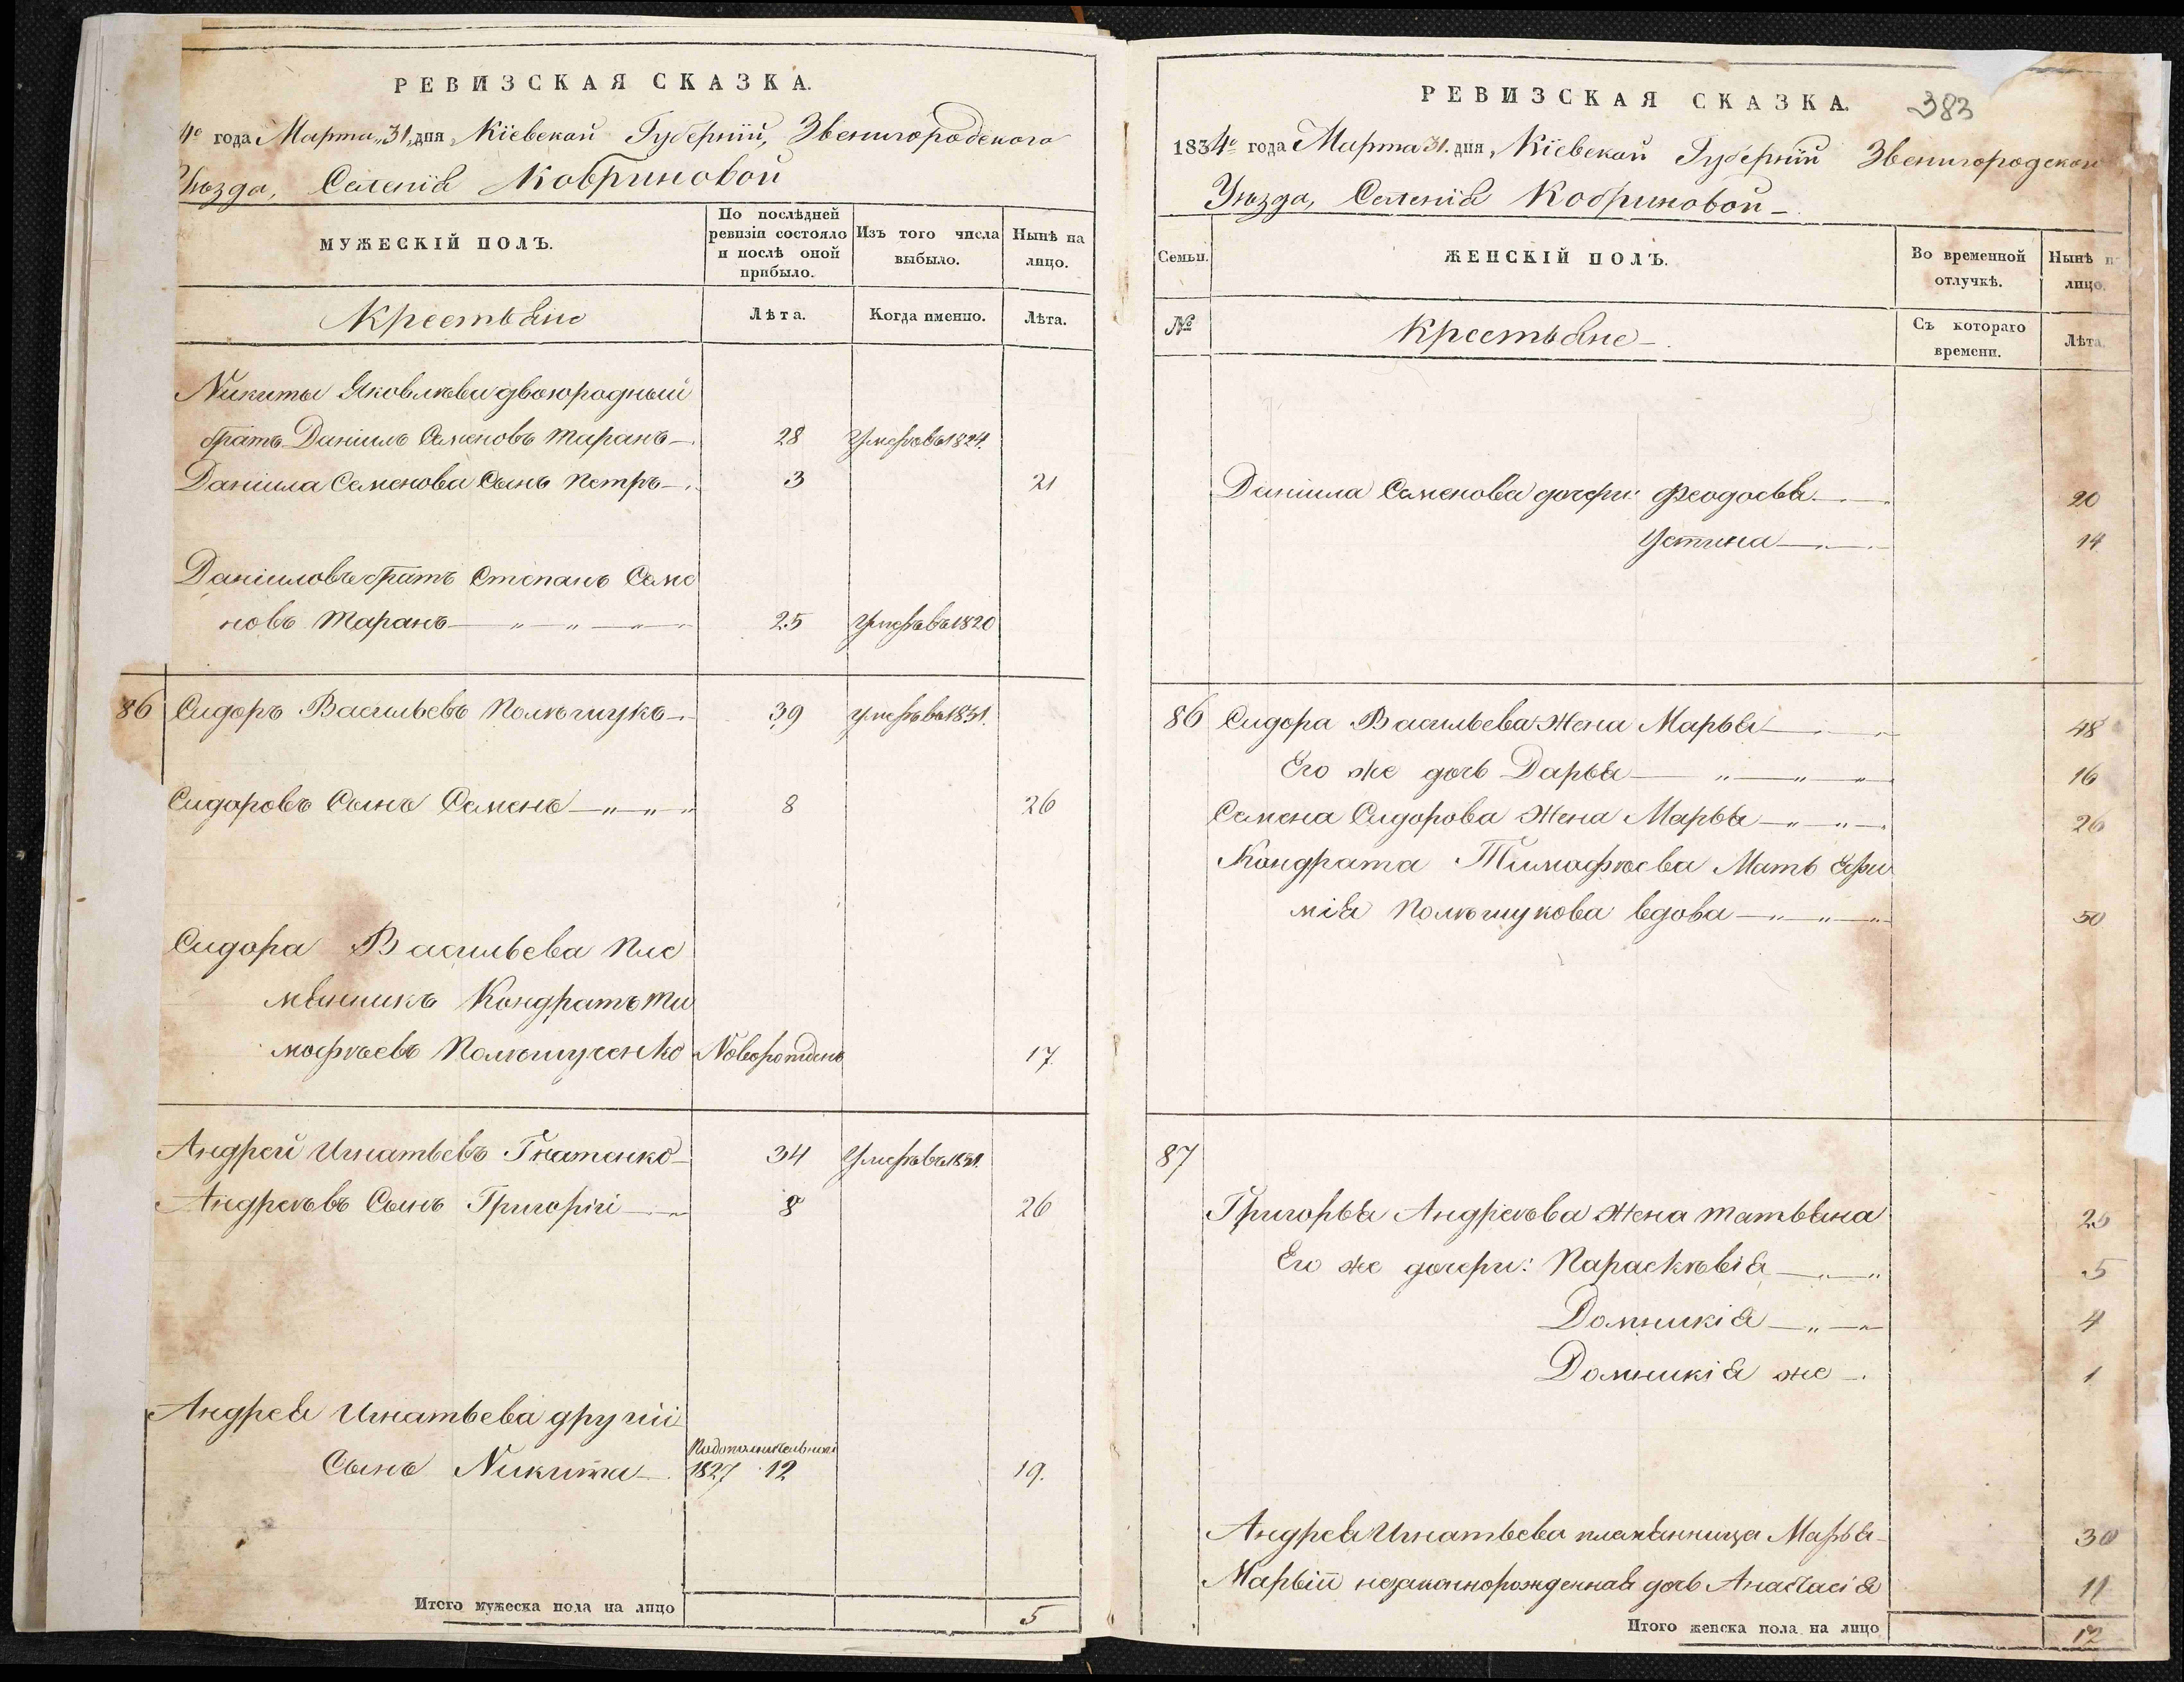 РЕВИЗСКАЯ СКАЗКА.
4го года Марта „31„ дня Кіевской Губерніи, Звенигородского
Уѣзда, Селенія Ковбриновой
МУЖЕСКІЙ ПОЛЪ.
По послѣдней ревизіи состояло и послѣ оной прибыло.
Изъ того числа выбыло.
Нынѣ на лицо.
Крестьяне
Лѣта.
Когда именно.
Лѣта.
Никиты Яковлѣва двоюродный
братъ Даніилъ Семеновъ Таранъ 28 Умеръ въ 1824.
Даніила Семенова Сынъ Петръ 3 21
Даніиловъ братъ Степанъ Семе
новъ Таранъ 25 Умеръ въ 1820
86 Сидоръ Васильевъ Полѣщукъ 39 умеръ въ 1831.
Сидоровъ Сынъ Семенъ 8 26
Сидора Васильева Пле
мянникъ Кондратъ Ти
мофѣевъ Полѣщученко Новорожденъ 17.
Андрей Игнатьевъ Гнатенко 34 Умеръ въ
Андрѣевъ Сынъ Григорій 8 26
Андрея Игнатьева другій
Сынъ Никита
1827 12 19.
Итого мужеска пола на лицо 5
РЕВИЗСКАЯ СКАЗКА.
383
1834го года Марта 31. дня, Кіевской Губерніи Звенигородской
Уѣзда, Селенія Кобриновой
Семьи.
ЖЕНСКІЙ ПОЛЪ.
Во временной отлучкѣ.
Нынѣ на лицо.
№
Крестьяне
Съ котораго времени.
Лѣта.
Даніила Семенова дочери: Феодосья 20
Устина 14
86 Сидора Васильева Жена Марья 48
Его же дочь Дарья 16
Семена Сидорова Жена Марья 26
Кондрата Тимофѣева Мать Ефи
мія Полѣщукова вдова 50
87
Григорья Андрѣева Жена Татьяна 25
Его же дочери: Парасковія 5
Домникія 4
Домникія же 1
Андрея Игнатьева племянница Марья 30
Марьіи незаконнорожденная дочь Анастасія 11
Итого женска пола на лицо 12